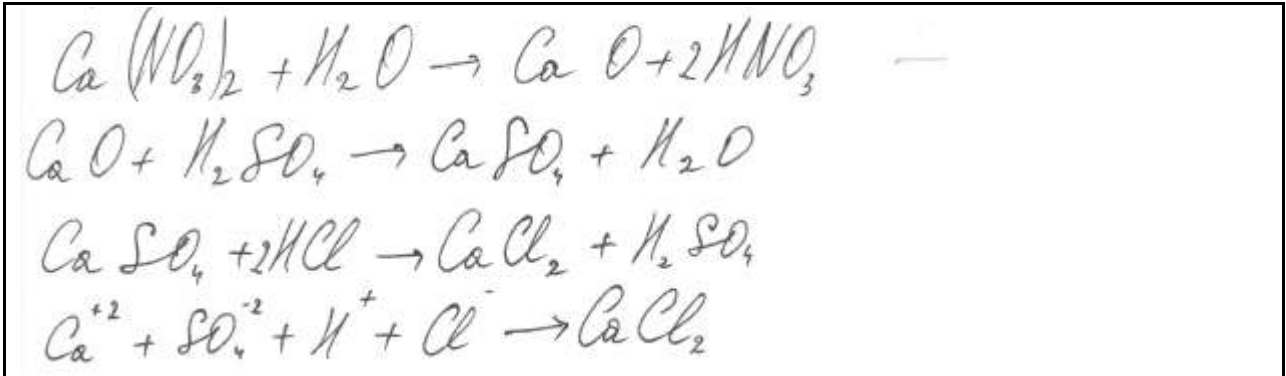 Ca(NO₃)₂ + H₂O → CaO + 2HNO₃
CaO + H₂SO₄ → CaSO₄ + H₂O
CaSO₄ + 2HCl → CaCl₂ + H₂SO₄
Ca⁺² + SO₄⁻² + H⁺ + Cl⁻ → CaCl₂